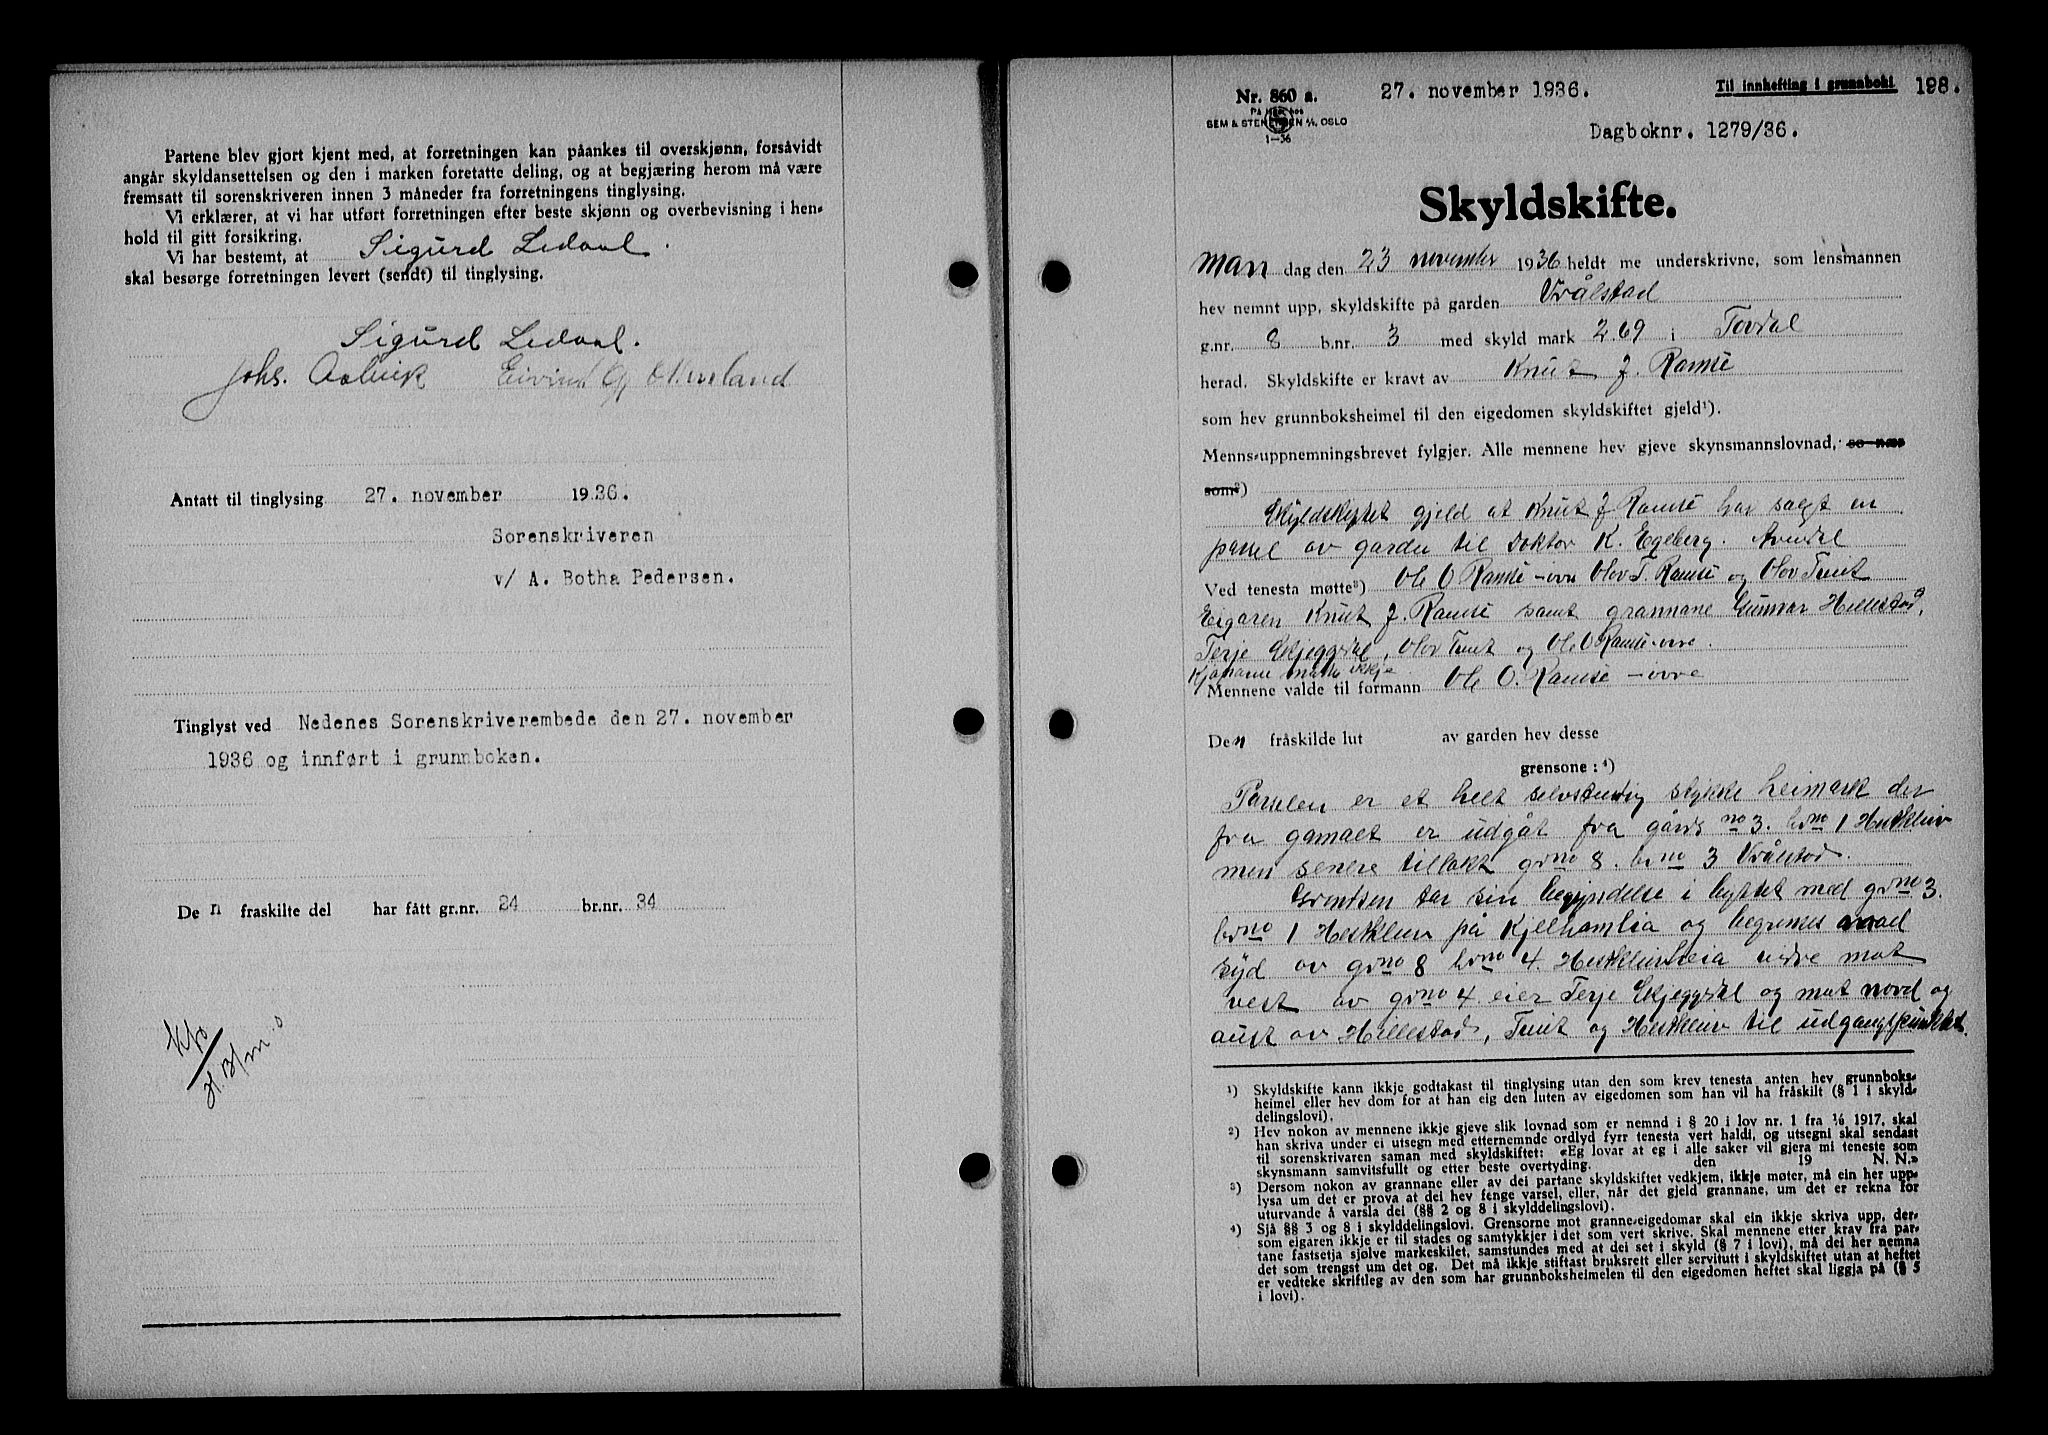 Partene blev gjort kjent med, at forretningen kan påankes til overskjønn, forsåvidt
angår skyldansettelsen og den i marken foretatte deling, og at begjæring herom må være
fremsatt til sorenskriveren innen 3 måneder fra forretningens tinglysing.
Vi erklærer, at vi har utført forretningen efter beste skjønn og overbevisning i hen-
hold til gitt forsikring.
Vi har bestemt, at Sigurd Ledaal.
skal besørge forretningen levert (sendt) til tinglysing.
Sigurd Ledaal.
Johs. Eivind
Antatt til tinglysing 27. november 1936.
Sorenskriveren
v/ A. Botha Pedersen.
Tinglyst ved Nedenes Sorenskriverembede den 27. november
1936 og innført i grunnboken.
De n fraskilte del har fått gr.nr. 24 br.nr. 34
Nr. 860 a. 27. november 1936. Til innhefting i grunnboki 198.
På lager hos
SEM & STENERSEN A/S, OSLO
1-36
Dagboknr. 1279/36.
Skyldskifte.
Man dag den 23 november 1936 heldt me underskrivne, som lensmannen
hev nemnt upp, skyldskifte på garden Vrålstad
g.nr. 8 b.nr. 3 med skyld mark 2.69 i Tovdal
herad. Skyldskifte er kravt av Knut J. Ramse
som hev grunnboksheimel til den eigedomen skyldskiftet gjeld¹).
Menns-uppnemningsbrevet fylgjer. Alle mennene hev gjeve skynsmannslovnad, so nær
som²)
Skyldskyftet gjeld at Knut J Ramse har salgt en
parsel av garden til Doktor K. Egeberg. Arendal
Ved tenesta møtte³) Ole O Ramse - ovre Olov T. Ramse og Olov Tveit
Eigaren Knut J. Ramse samt grannane Gunnar Hillestad,
Terje Skjeggedal, Olov Tveit og Ole O Ramse-ovre.
Kjøparen møtte ikkje
Mennene valde til formann Ole O. Ramse - ovre
De n fråskilde lut av garden hev desse
grensone: ⁴)
Parselen er et helt selvstendig stykke heimark der
fra gamalt er udgåt fra gårds no 3. brno 1 Hestkleiv
men senere tillakt grno 8. brno 3 Vrålstad.
Grendsen tar sin begyndelse i byttet med grno 3.
brno 1 Hestkleiv på Kjelhomlia og begrenses mod
syd av grno 8 brno 4. Hestkleivheia vidre mot
vest av grno 4. eier Terje Skjeggedal og mot nord og
aust av Hillestad, Tveit og Hestkleiv til udgangspunktet.
¹) Skyldskifte kann ikkje godtakast til tinglysing utan den som krev tenesta anten hev grunnboks-
heimel eller hev dom for at han eig den luten av eigedomen som han vil ha fråskilt (§ 1 i skyld-
delingslovi).
²) Hev nokon av mennene ikkje gjeve slik lovnad som er nemnd i § 20 i lov nr. 1 fra 1/6 1917, skal
han skriva under ei utsegn med etternemnde ordlyd fyrr tenesta vert haldi, og utsegni skal sendast
til sorenskrivaren saman med skyldskiftet: «Eg lovar at eg i alle saker vil gjera mi teneste som
skynsmann samvitsfullt og etter beste overtyding. den 19 N. N.»
³) Dersom nokon av grannane eller av dei partane skyldskiftet vedkjem, ikkje møter, må ein her upp-
lysa um det er prova at dei hev fenge varsel, eller, når det gjeld grannane, um det er rekna for
uturvande å varsla dei (§§ 2 og 8 i skylddelingslovi).
⁴) Sjå §§ 3 og 8 i skylddelingslovi. Grensorne mot granne-eigedomar skal ein ikkje skriva upp, der-
som eigaren ikkje er til stades og samtykkjer i det som vert skrive. Skal mennene etter krav fra par-
tane fastsetja sjølve markeskilet, samstundes med at dei set i skyld (§ 7 i lovi), må dei her nemna
det som trengst um det og. Det må ikkje stiftast bruksrett eller servitutt i skyldskiftet utan at heftet
er vedteke skriftleg av den som har grunnboksheimelen til den eigedomen heftet skal liggja på (§ 5
i lovi).